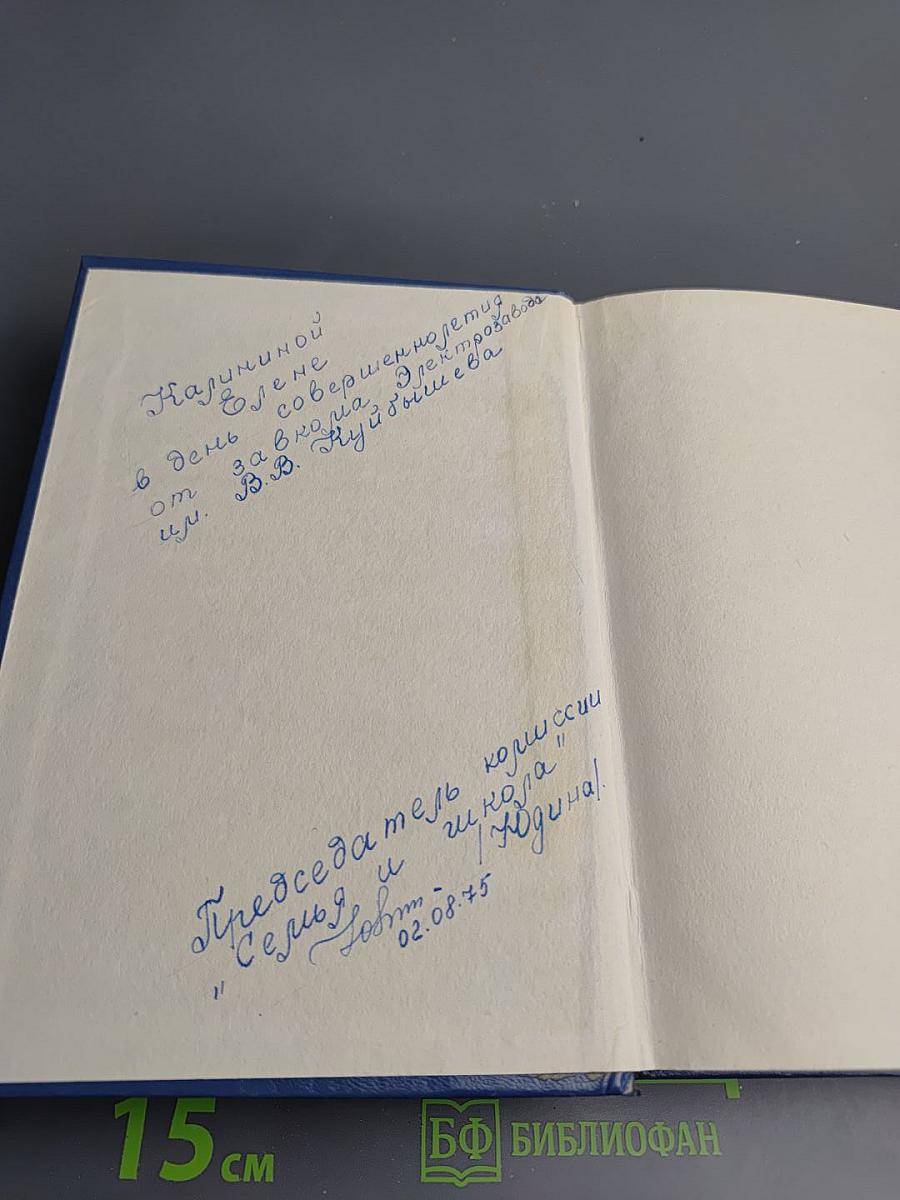 Калининой
Елене
в день совершеннолетия
от завкома Электрозавода
им. В.В. Куйбышева
Председатель комиссии
"Семья и школа"
/Юдина/.
02.08.75
15 см
БФ БИБЛИОФАН